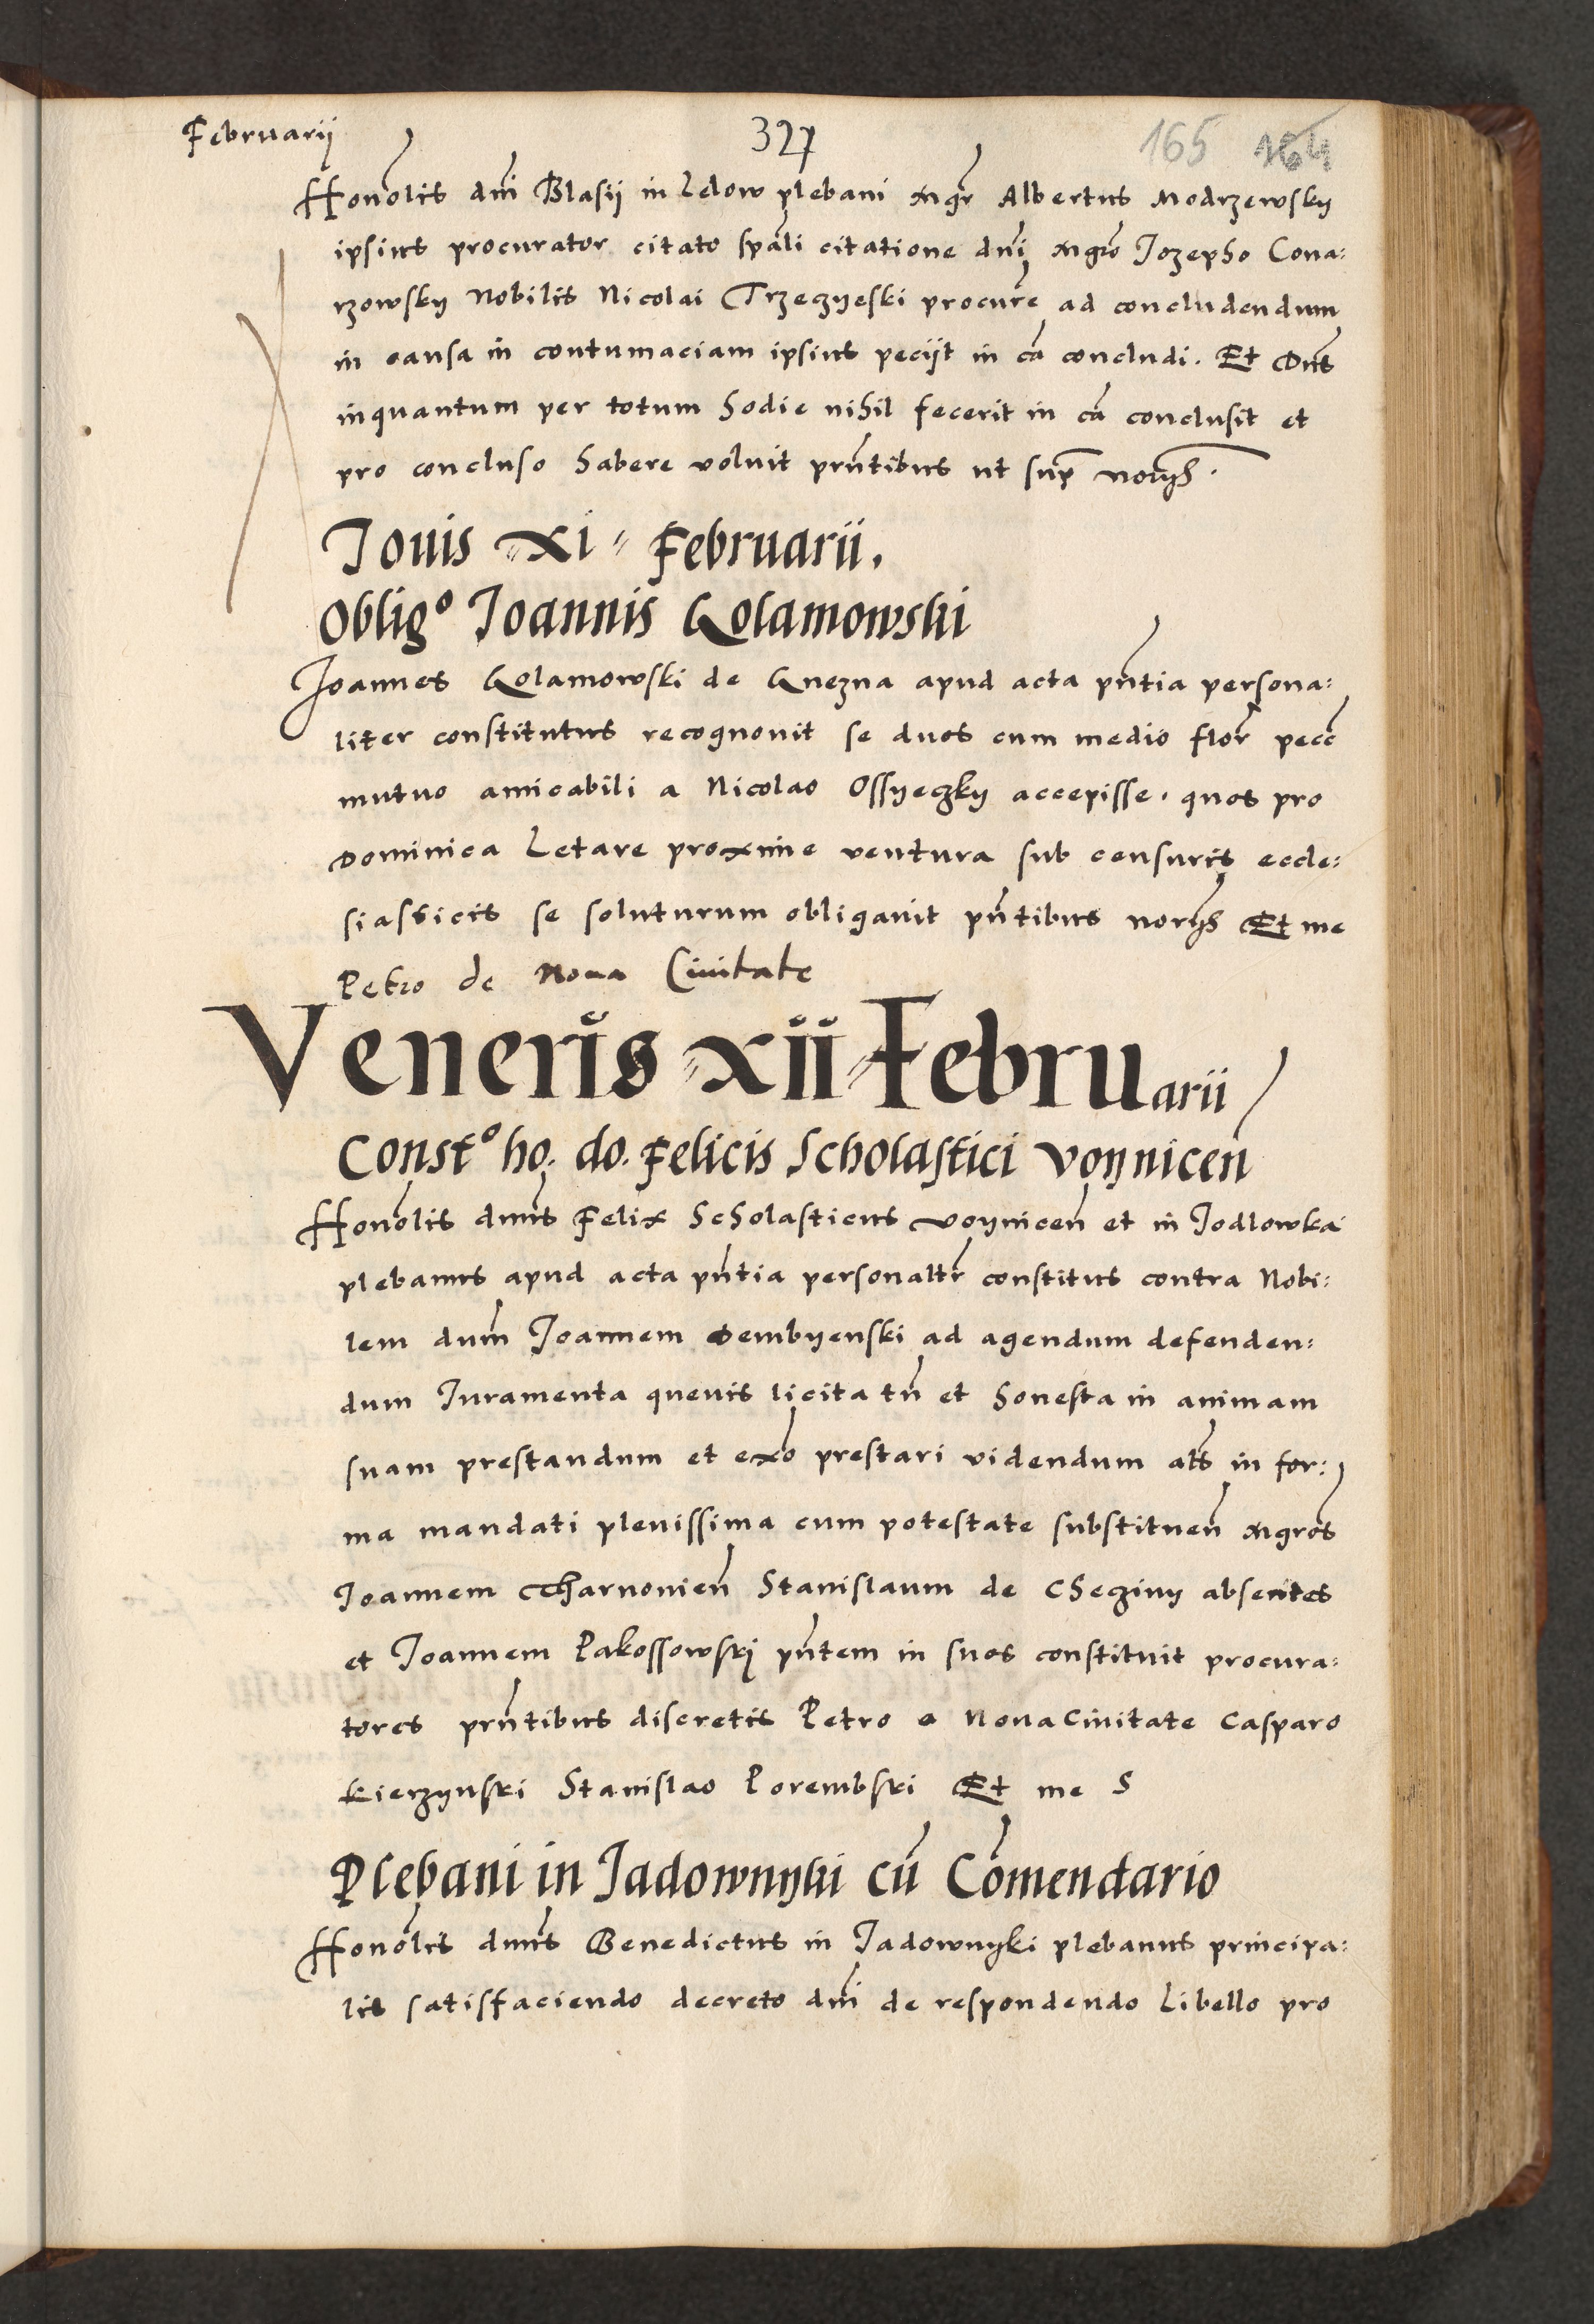 Februarii
327
165 164
Honolis dni Blasij in Lelow plebani mgr Albertus Modrzewsky
ipsius procurator citato spali citatione dni mgro Jozepho Cona:
rzowsky Nobilis Nicolai Trzeczyeski procure ad concludendum
in causa in contumaciam ipsius pecijt in ca concludi. Et Dns
inquantum per totum hodie nihil fecerit in ca conclusit et
pro concluso habere voluit prntibus ut sup
Jouis xi Februarii.
Obligo Joannis Golamowski
Joannes Golamowski de Gnezna apud acta pntia persona:
liter constitutus recognouit se duos cum medio flor pecc
mutuo amicabili a Nicolao Ossyeczky accepisse. quos pro
Dominica Letare proxime ventura sub censuris eccle:
siasticis se soluturum obligauit pntibus Et me
Petro de Noua Ciuitate
Veneris xii Februarii
Consto ho. do. Felicis Scholastici Voynicen
Honolis dnns Felix Scholasticus Voynicen et in Jodlowka
plebanus apud acta pntia personaltr constitus contra Nobi:
lem dnm Joannem Dembyenski ad agendum defenden:
dum Juramenta queuis licita tn et honesta in animam
suam prestandum et exo prestari videndum als in for:
ma mandati plenissima cum potestate substituen mgros
Joannem Tharnouien Stanislaum de Checziny absentes
et Joannem Pakossowski pntem in suos constituit procura:
tores prntibus discretis Petro a Noua Ciuitate Casparo
Kierzynski Stanislao Porembski Et me S
Plebani in Jadownyki cu Comendario
Honolis dnns Benedictus in Jadownyki plebanus principa:
lis satisfaciendo decreto dni de respondendo libello pro